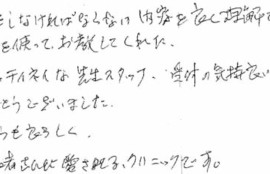 をしなければならない内容を良く理解で
を使って、お教してくれた。
ッティネイな 先生スタッフ、受付の気持良い
とうございました。
も良ろしく。
者さんに愛されてる、クリニックです。